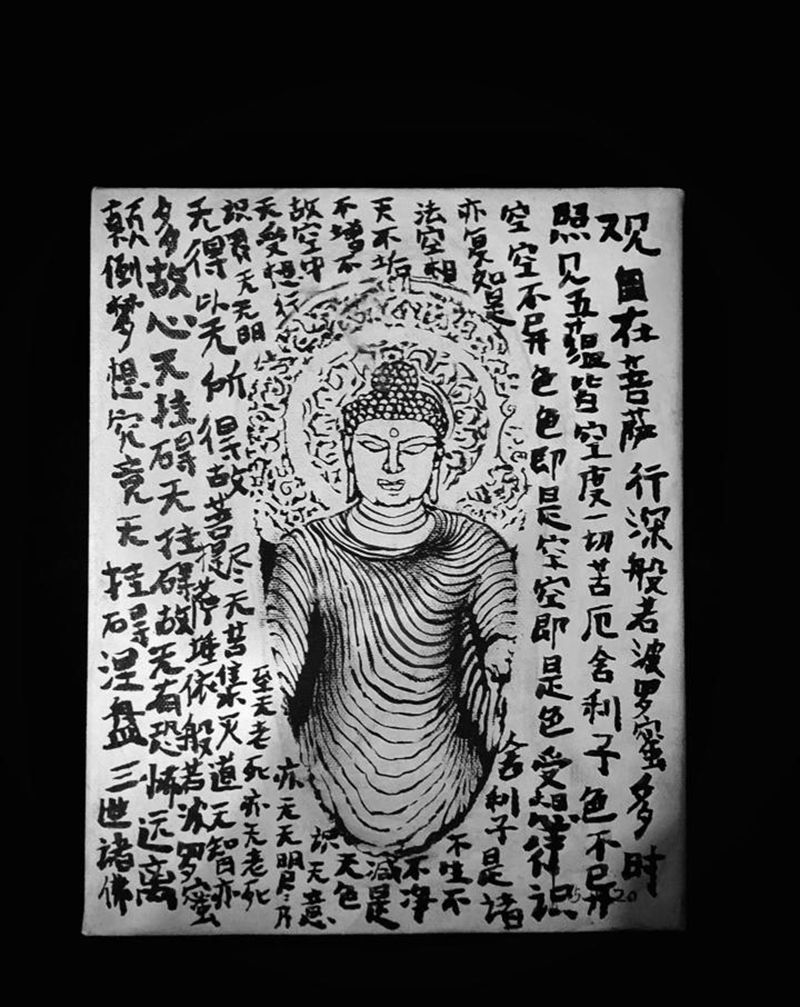 观自在菩萨行深般若波罗蜜多时
照见五蕴皆空度一切苦厄舍利子色不异
空空不异色色即是空空即是色受想行识
亦复如是
舍利子是诸
法空相
不生不
不垢
不净
不增不
减是
故空中
无色
无受想行
识无意
识界无无明
亦无无明尽
至无老死亦无老死
尽无苦集灭道无智亦
无得以无所得故菩提萨埵依般若波罗蜜
多故心无挂碍无挂碍故无有恐怖远离
颠倒梦想究竟无挂碍涅盘三世诸佛